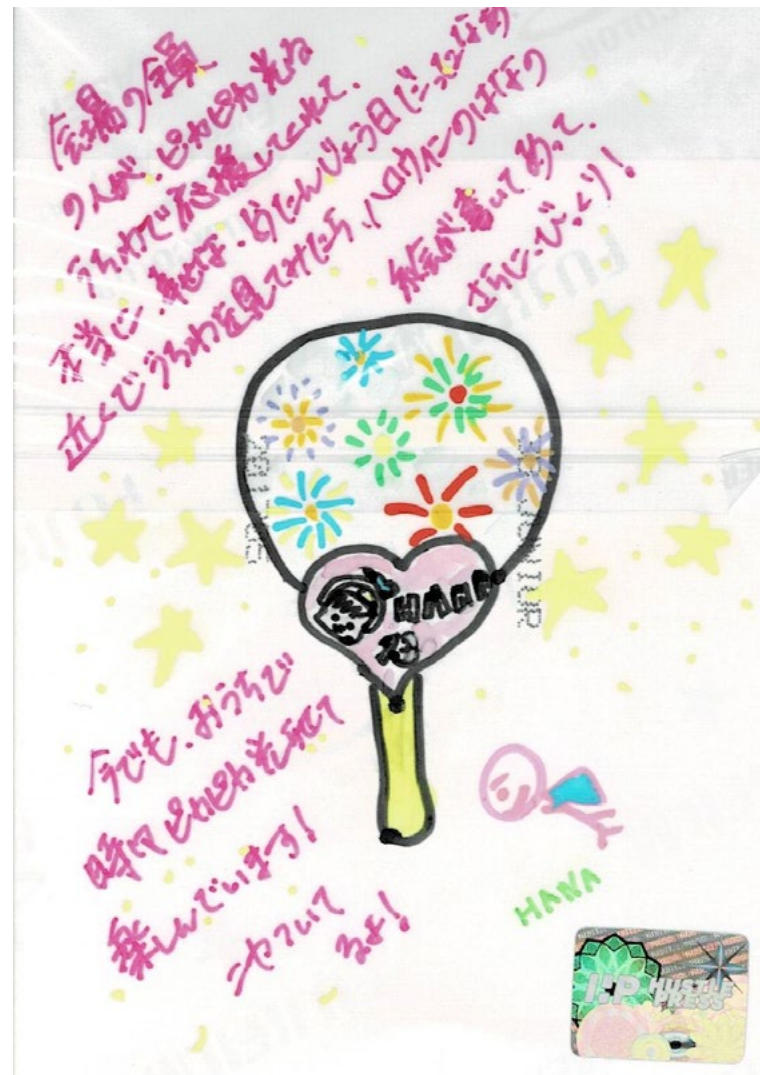 会場の全員
の人が、ピカピカ光る
うちわで応援してくれて、
本当に、幸せな、おたんじょう日だったなあ
近くでうちわを見てみたら、ハロウィンのはなの
絵が書いてあって、
さらに、びっくり!
HANA
今でも、おうちで
時々ピカピカ光らせて
楽しんでいます!
ニヤついて
るよ!
HANA
H!P HUSTLE
PRESS